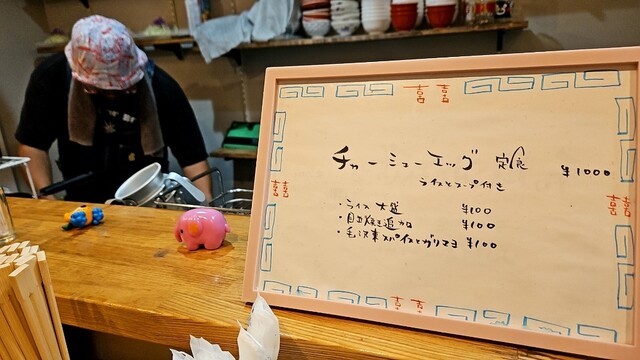 チャーシューエッグ 定食 ¥1000
ライスとスープ付き
・ライス 大盛 ¥100
・目玉焼き追加 ¥100
・毛沢東スパイスとガリマヨ ¥100